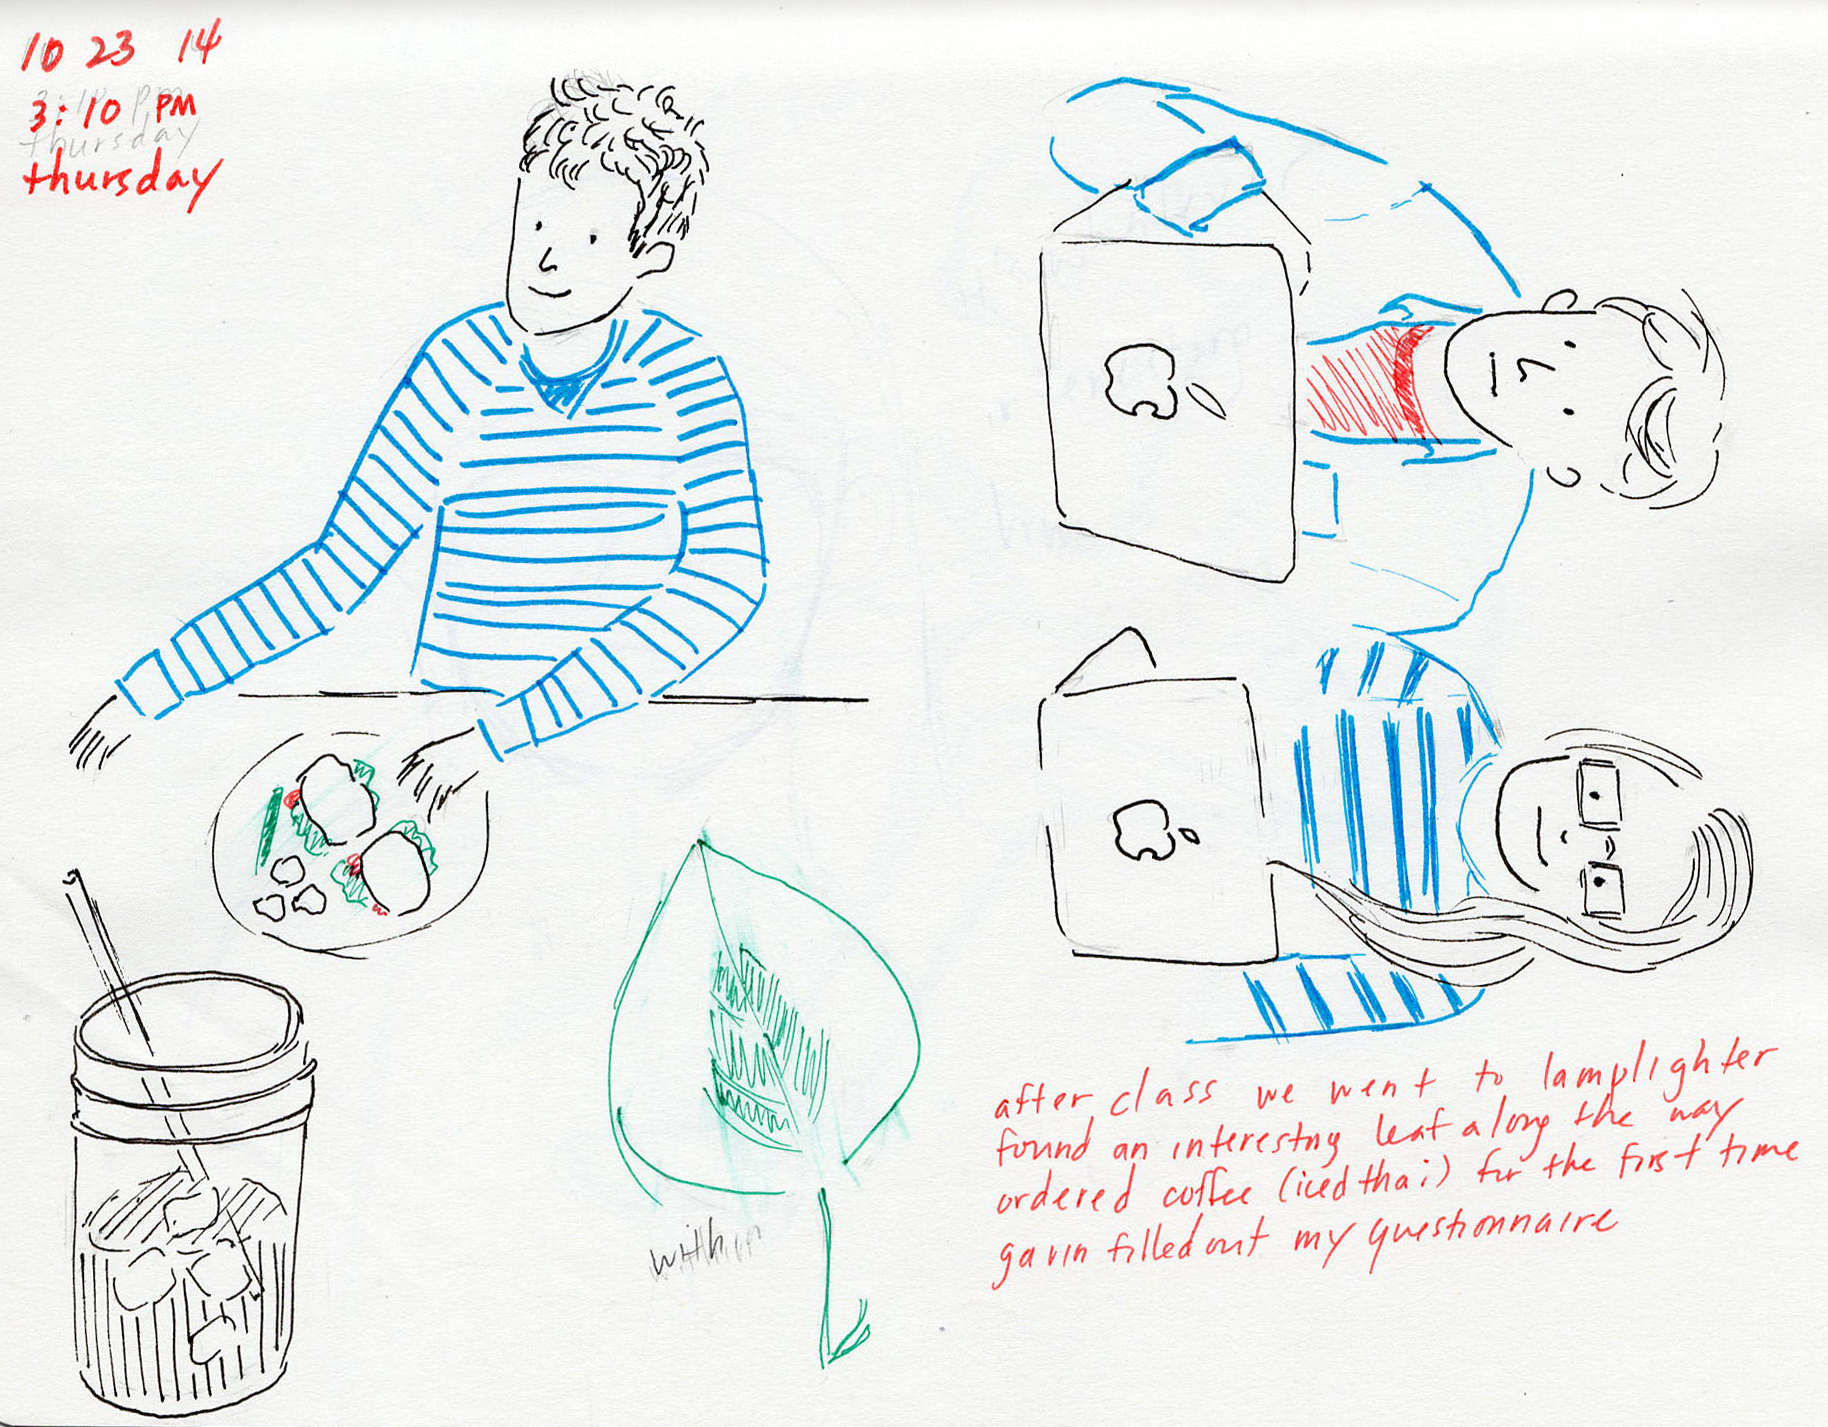 10 23 14
3:10 pm
3:10 PM
thursday
thursday
after class we went to lamplighter
found an interesting leaf along the way
ordered coffee (iced thai) for the first time
gavin filled out my questionnaire